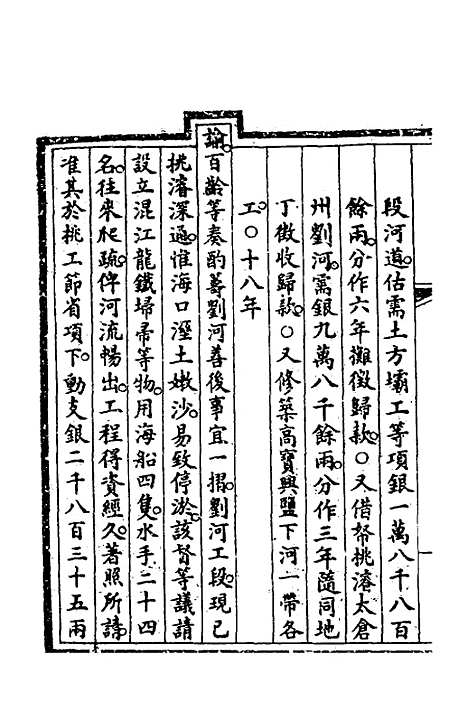 段河道。估需土方壩工等項銀一萬八千八百
餘兩。分作六年攤徵歸款。○又借帑挑濬太倉
州劉河。需銀九萬八千餘兩。分作三年隨同地
丁徵收歸款。○又修築高寶興鹽下河一帶各
工。○十八年
諭。百齡等奏酌籌劉河善後事宜一摺。劉河工段。現已
挑濬深通。惟海口溼土嫩沙。易致停淤。該督等議請
設立混江龍鐵埽帚等物。用海船四隻。水手二十四
名。往來爬疏。俾河流暢出。工程得資經久。著照所請。
准其於挑工節省項下。動支銀二千八百三十五兩